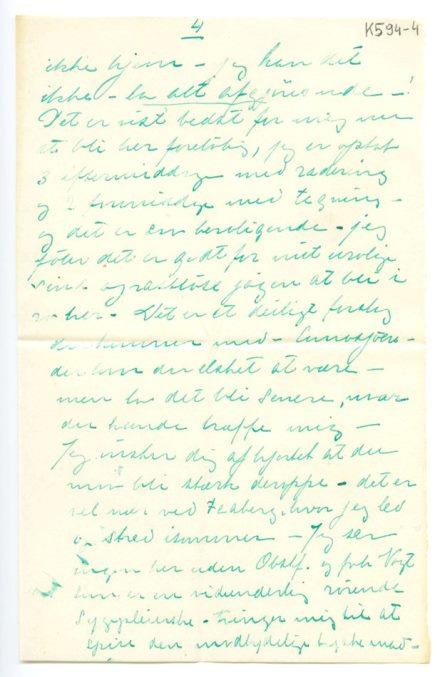 4
K594-4
ikke hjem – jeg kan det
ikke – la alt afgjøres nu de –!
Det er vist bedst for mig nu
at bli her foreløbig, jeg er optat
3 eftermiddage med radering
og 2 formiddage med tegning –
og det er beroligende – jeg
føler det er godt for mit urolige
sind og rastløse jagen at bli i
ro her – Det er et deilige forslag
du kommer med –
der kan du elsket at være –
men la det bli senere,
du kunde træffe mig –
Jeg ønsker dig af hjertet at du
må bli stærk deroppe – det er
vel nær ved Faaberg, hvor jeg led
og stred isommer – Jeg ser
ingen her uden Obstf. og frk Vogt
som er en vidunderlig rørende
Sygepleierske – tvinger mig til at
spise den modbydelige mad –